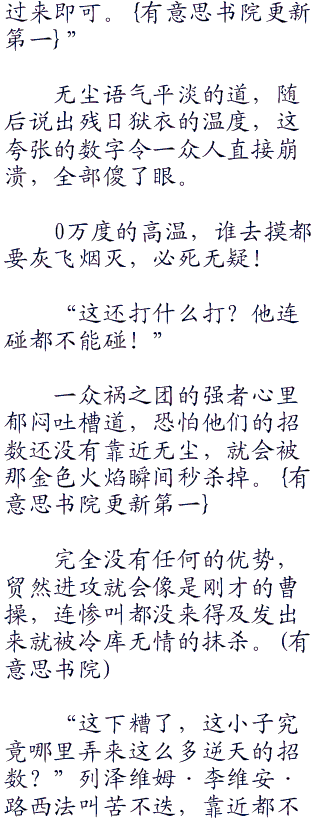 过来即可。{有意思书院更新
第一}”
无尘语气平淡的道，随
后说出残日狱衣的温度，这
夸张的数字令一众人直接崩
溃，全部傻了眼。
0万度的高温，谁去摸都
要灰飞烟灭，必死无疑！
“这还打什么打？他连
碰都不能碰！”
一众祸之团的强者心里
郁闷吐槽道，恐怕他们的招
数还没有靠近无尘，就会被
那金色火焰瞬间秒杀掉。{有
意思书院更新第一}
完全没有任何的优势，
贸然进攻就会像是刚才的曹
操，连惨叫都没来得及发出
来就被冷库无情的抹杀。(有
意思书院)
“这下糟了，这小子究
竟哪里弄来这么多逆天的招
数？”列泽维姆·李维安·
路西法叫苦不迭，靠近都不